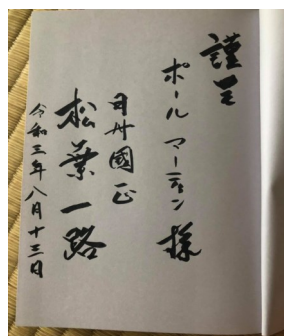 謹呈
ポール マーティン 様
國正
松葉一路
令和三年八月十三日